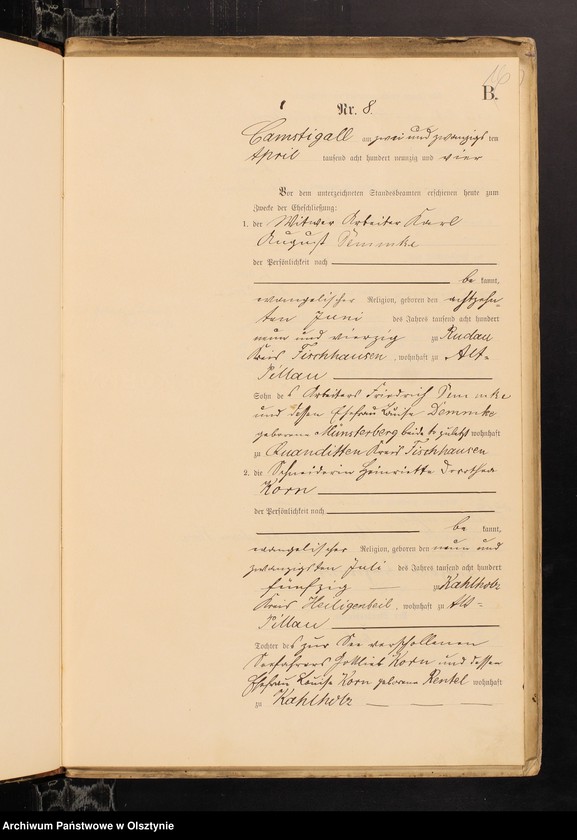 B.
Nr. 8.
Camstigall am zwei und zwanzigsten
April tausend acht hundert neunzig und vier
Vor dem unterzeichneten Standesbeamten erschienen heute zum
Zwecke der Eheschließung:
1. der Witwer Arbeiter Karl
August Demmke
der Persönlichkeit nach
be kannt,
evangelischer Religion, geboren den achtzehn-
ten Juni des Jahres tausend acht hundert
neun und vierzig zu Rudau
Kreis Fischhausen, wohnhaft zu Alt-
Pillau
Sohn des Arbeiters Friedrich Demmke
und dessen Ehefrau Louise Demmke
geborene Münsterberg beide zuletzt wohnhaft
zu Quanditten Kreis Fischhausen
2. die Schneiderin Heinriette Dorothea
Korn
der Persönlichkeit nach
be kannt,
evangelischer Religion, geboren den neun und
zwanzigsten Juli des Jahres tausend acht hundert
fünfzig zu Kahlholz
Kreis Heiligenbeil, wohnhaft zu Alt-
Pillau
Tochter des zur See verschollenen
Seefahrers Gottlieb Korn und dessen
Ehefrau Louise Korn geborene Rentel wohnhaft
zu Kahlholz
Archiwum Państwowe w Olsztynie